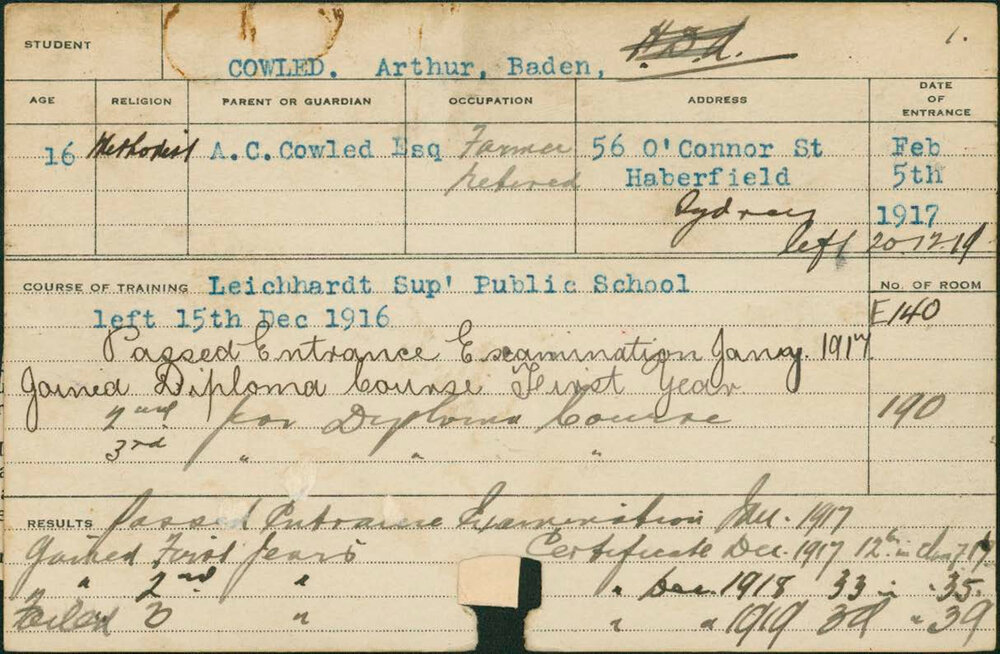 STUDENT
COWLED. Arthur, Baden, H.D.A. 1.
AGE RELIGION PARENT OR GUARDIAN OCCUPATION ADDRESS DATE OF ENTRANCE
16 Methodist A.C.Cowled Esq Farmer 56 O'Connor St Feb
retired Haberfield 5th
Sydney 1917
left 20.12.19
COURSE OF TRAINING Leichhardt Sup' Public School No. OF ROOM
left 15th Dec 1916 E140
Passed Entrance Examination Jany. 1917
Joined Diploma Course First Year
2nd year Diploma Course 190
3rd " " "
RESULTS Passed Entrance Examination Jan. 1917
Gained First Years Certificate Dec. 1917 12th in class
" 2nd " " Dec. 1918 33 in " 35.
Failed 3 " " " 1919 39 " 39